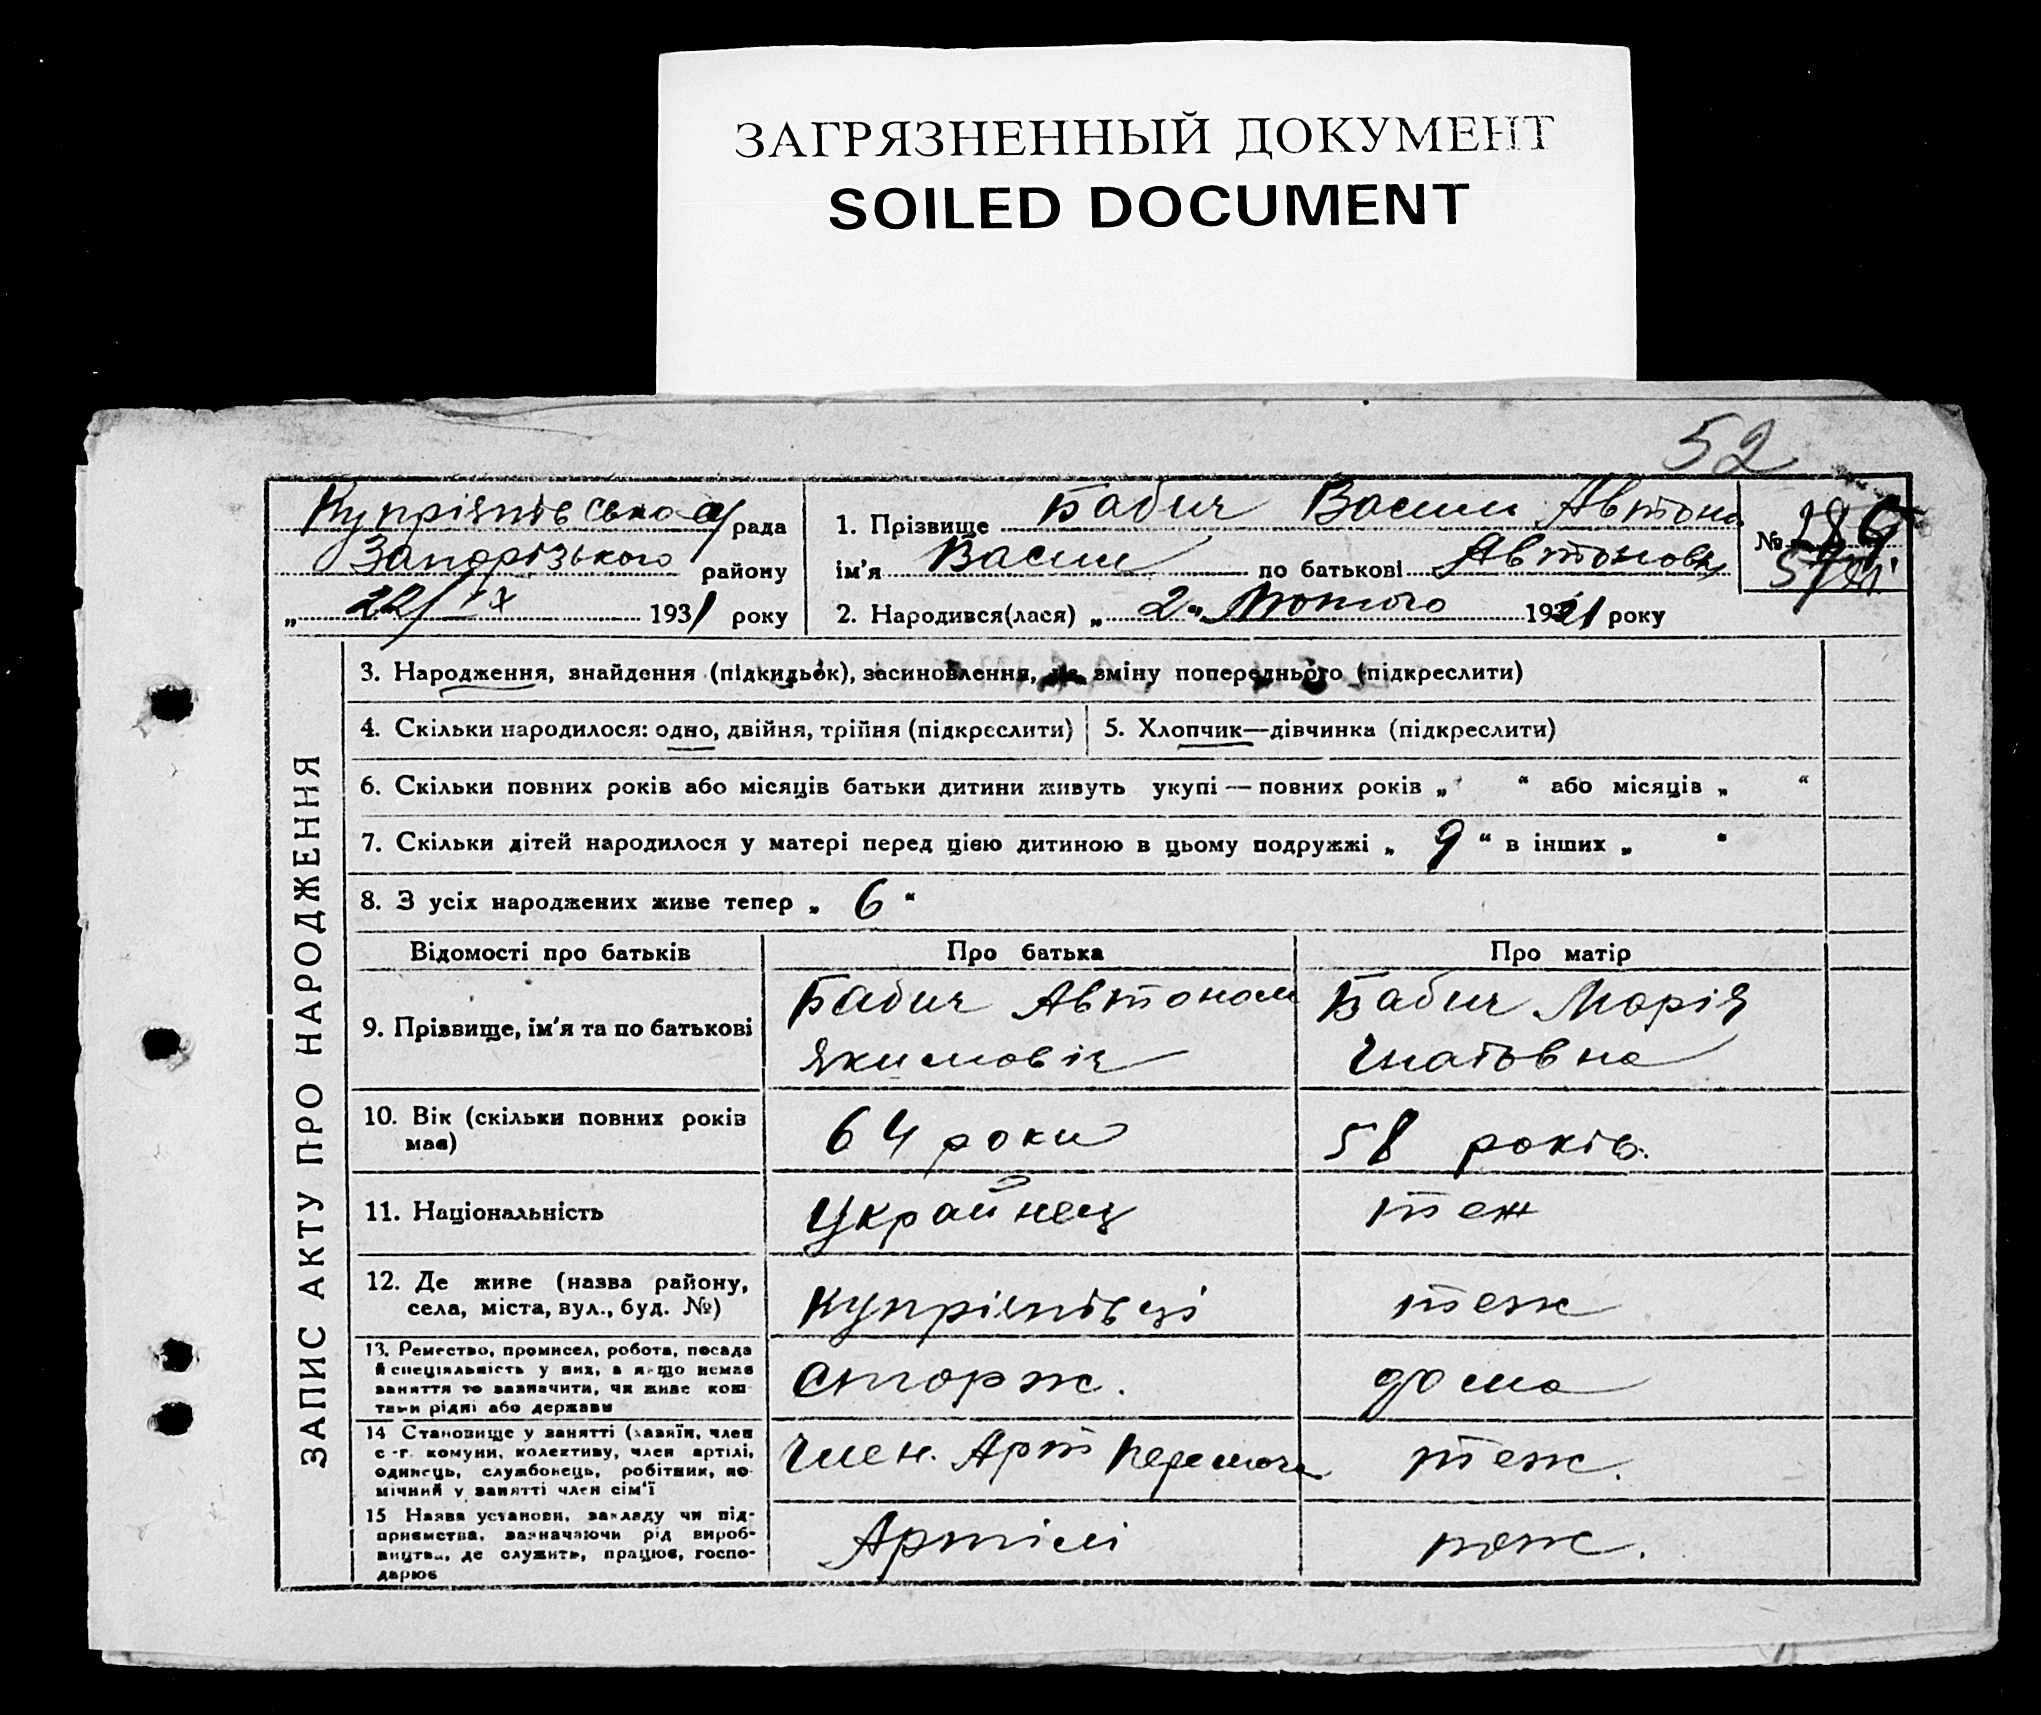 ЗАГРЯЗНЕННЫЙ ДОКУМЕНТ
SOILED DOCUMENT
52
Купріянівська с/рада
Запорізького району
22/IX 1931 року
1. Прізвище Бабич Васил Автоно
ім'я Васил по батькові Автонов
2. Народився(лася) „ 2 “ Лютого 1921 року
№ 186
ЗАПИС АКТУ ПРО НАРОДЖЕННЯ
3. Народження, знайдення (підкидьок), засиновлення, на зміну попереднього (підкреслити)
4. Скільки народилося: одно, двійня, трійня (підкреслити)
5. Хлопчик—дівчинка (підкреслити)
6. Скільки повних років або місяців батьки дитини живуть укупі — повних років „ “ або місяців „ “
7. Скільки дітей народилося у матері перед цією дитиною в цьому подружжі „ 9 “ в інших „ “
8. З усіх народжених живе тепер „ 6 “
Відомості про батьків
Про батька
Про матір
9. Прізвище, ім'я та по батькові
Бабич Автоном
Якимовіч
Бабич Марія
Гнатовна
10. Вік (скільки повних років
має)
64 роки
58 років.
11. Національність
Українец
теж
12. Де живе (назва району,
села, міста, вул., буд. №)
Купріянівці
теж
13. Ремество, промисел, робота, посада
й спеціяльність у них, а якщо немає
заняття то зазначити, чи живе кош-
тами рідні або держави
Сторж.
дома
14 Становище у занятті (хазяїн, член
с.-г. комуни, колективу, член артілі,
одинець, службовець, робітник, по-
мічний у занятті член сім'ї
Член. Арт Перемога
теж.
15 Назва установи, закладу чи під-
приємства, зазначаючи рід вироб-
ництва, де служить, працює, госпо-
дарює
Артілі
теж.